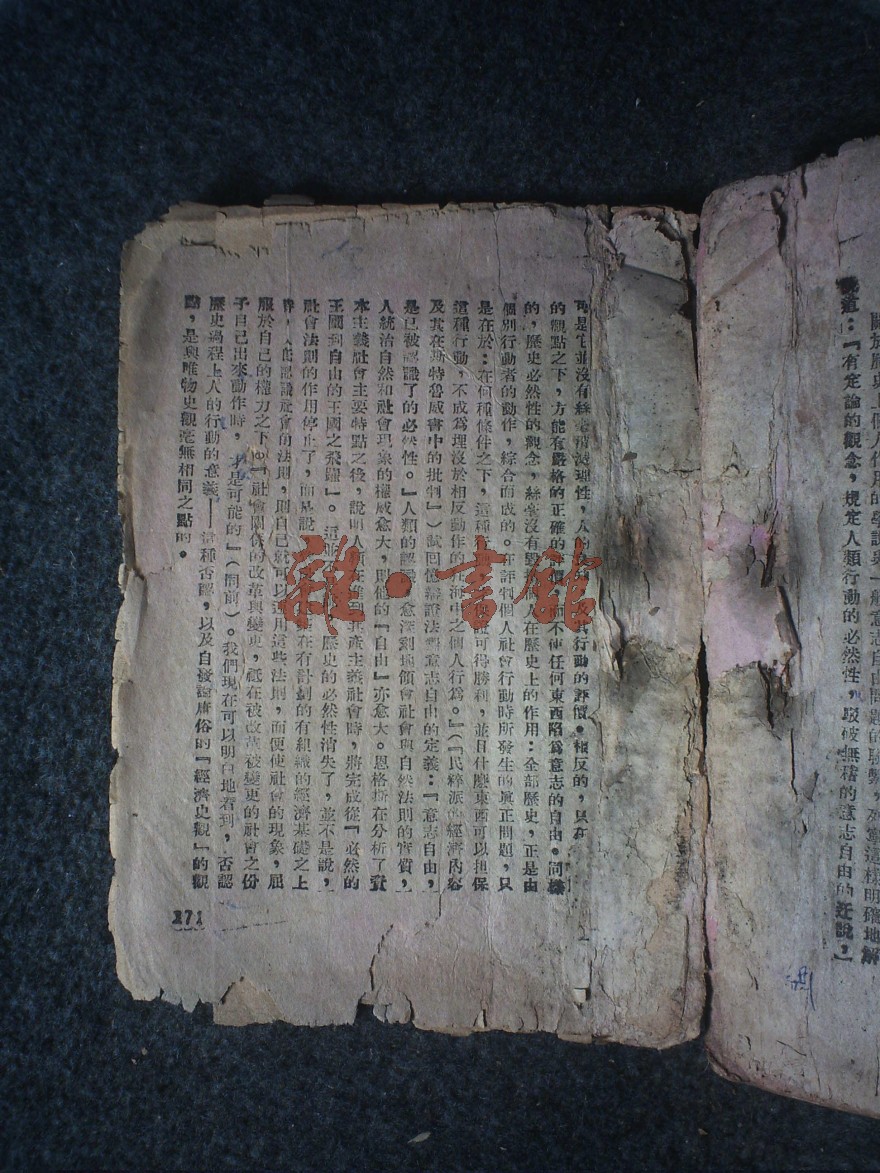 關於歷史上個人作用的學說與一般意志自由問題的聯繫，列寧這樣明確地解
說道：『有定論的觀念，規定人類行動的必然性，駁彼無稽的意志自由的迂說，
可是它並沒有絲毫消滅理性，人的及其行動的評價。相反的，只在
的觀點之下，方能有嚴格的正確的評價，而不使任何東西陷為意志的自由。同樣
的，歷史必然性的觀念，絲毫沒有毀人在歷史上的作用：全部歷史，正是由
個別行動者的動作，綜合而成的。在評判個人社會行動時所發生的真正問題，只
是在於：在何種條件之下，這種行可得勝利，並且什麼東西可以担保
這種行動，不成為埋沒於相反動作的汪海中之個人行為。』（『民粹派的經濟內容
及其在斯特魯威書中的批判』）試回憶辯證法與意志自由的定義：『意志自由，
是已被認識了的必然性。』人類的認識愈深刻地領會社會與自然法則的實質，
人統治自然和社會現象的權威愈大，則他的『自由』亦愈大。恩格斯在分析了資
本主義社會主要特點之後，說明人類在進到共產主義社會時，將完成從『必然的
王國到自由的王國之飛躍』。這並歷史的必然性消失了，並不是說，
社會法則的作用停止了，而是說在有計劃的有組織的經濟基礎之上
，人能認識社會的法則，則自己就可以運用這些法則，而便使社會的現象，屈
服於自己的權力之下。『社會關係的改革與變更，祇在被改革被變更的社會之份
子自己出來動作時，才是可能的』（同前）。我們現在可以明白地看到，否認
歷史過程上人的行動的意義——這種否認，以及自發論庸俗的『經濟史觀』的觀
點，是與唯物史觀毫無相同之點的。
271
雜·書館